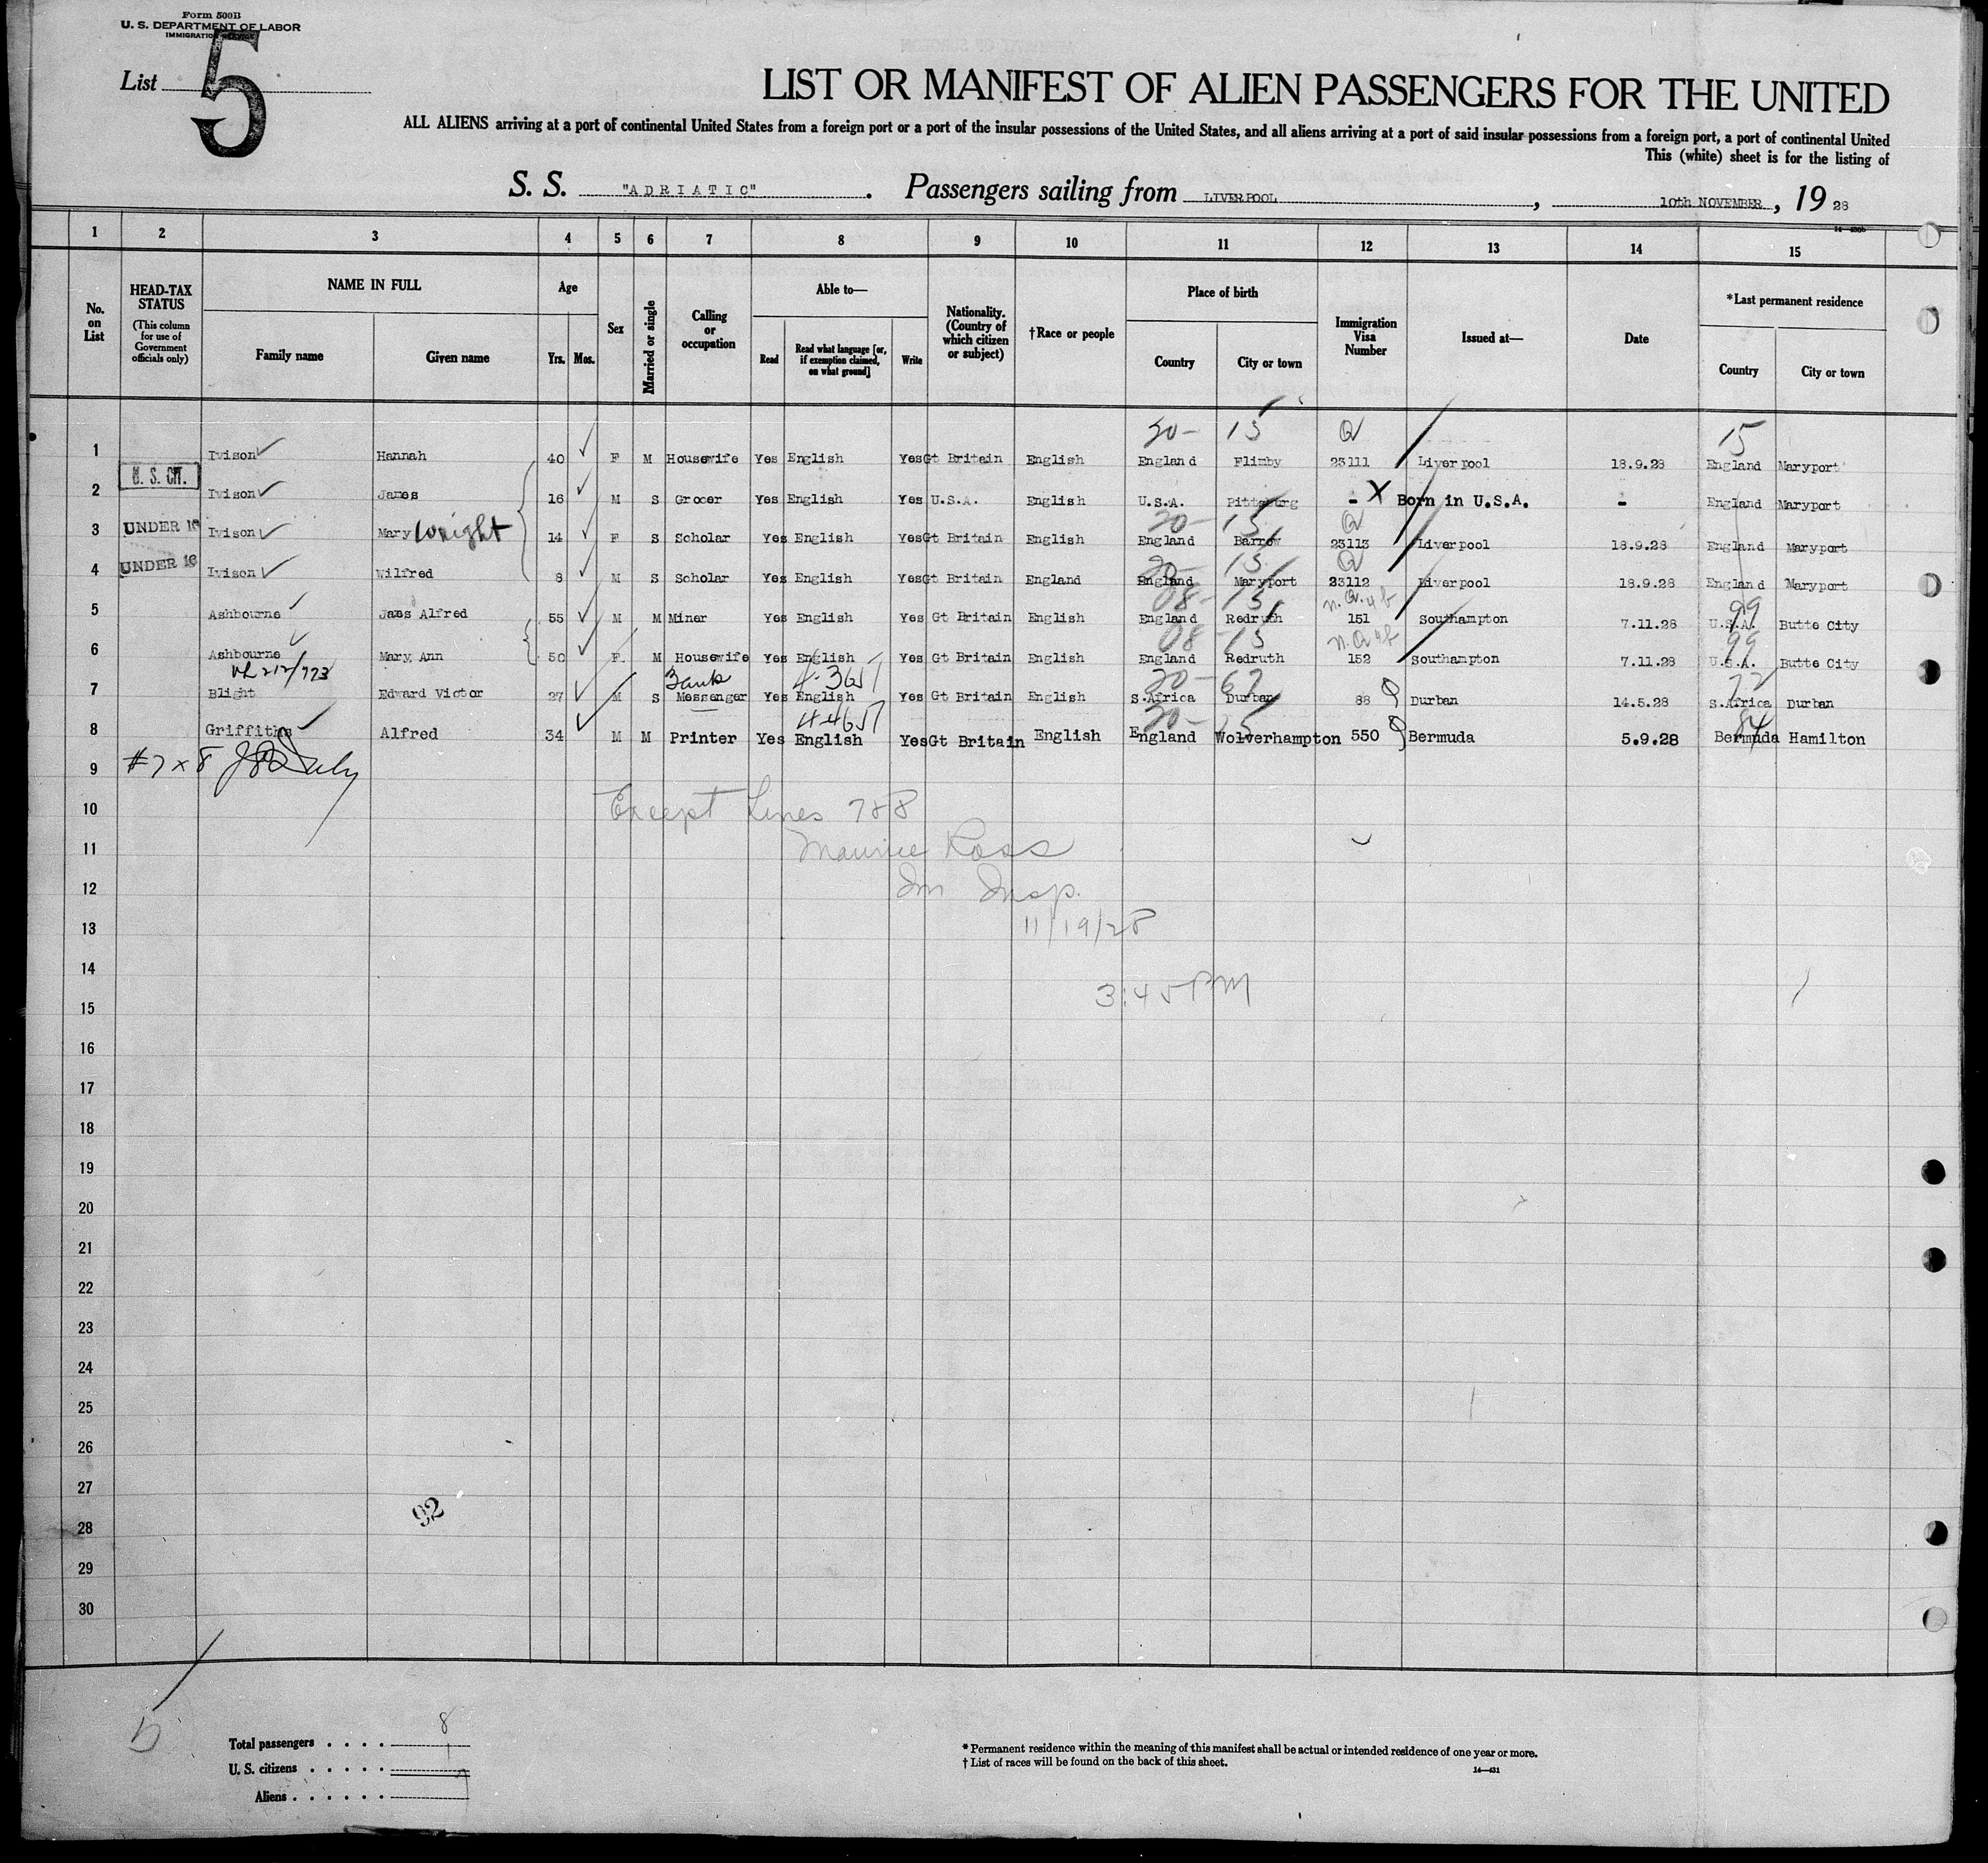 Form 500B
U. S. DEPARTMENT OF LABOR
IMMIGRATION SERVICE
List 5
LIST OR MANIFEST OF ALIEN PASSENGERS FOR THE UNITED
ALL ALIENS arriving at a port of continental United States from a foreign port or a port of the insular possessions of the United States, and all aliens arriving at a port of said insular possessions from a foreign port, a port of continental United
This (white) sheet is for the listing of
S. S. "ADRIATIC". Passengers sailing from LIVERPOOL, 10th NOVEMBER, 19 28
1 2 3 4 5 6 7 8 9 10 11 12 13 14 15
No. on List
HEAD-TAX STATUS
(This column for use of Government officials only)
NAME IN FULL
Family name
Given name
Age
Yrs. Mos.
Sex
Married or single
Calling or occupation
Able to—
Read
Read what language [or, if exemption claimed, on what ground]
Write
Nationality. (Country of which citizen or subject)
†Race or people
Place of birth
Country
City or town
Immigration Visa Number
Issued at—
Date
*Last permanent residence
Country
City or town
20- 15 Q 15
1 Ivison Hannah 40 F M Housewife Yes English Yes Gt Britain English England Flimby 23111 Liverpool 18.9.28 England Maryport
U. S. CIT.
2 Ivison James 16 M S Grocer Yes English Yes U.S.A. English U.S.A. Pittsburg - X Born in U.S.A. - England Maryport
20- 15 Q
3 UNDER 16 Ivison Mary Wright 14 F S Scholar Yes English Yes Gt Britain English England Barrow 23113 Liverpool 18.9.28 England Maryport
20- 15 Q
4 UNDER 16 Ivison Wilfred 8 M S Scholar Yes English Yes Gt Britain England England Maryport 23112 Liverpool 18.9.28 England Maryport
08- 15 n.Q. 4b 99
5 Ashbourne Jams Alfred 55 M M Miner Yes English Yes Gt Britain English England Redruth 151 Southampton 7.11.28 U.S.A. Butte City
08 15 N.Q 4b 99
6 Ashbourne Mary Ann 50 F M Housewife Yes English Yes Gt Britain English England Redruth 152 Southampton 7.11.28 U.S.A. Butte City
212/773 Bank 20- 67 72
7 Blight Edward Victor 27 M S Messenger Yes English Yes Gt Britain English S.Africa Durban 88 Durban 14.5.28 S.Africa Durban
20- 15 84
8 Griffiths Alfred 34 M M Printer Yes English Yes Gt Britain English England Wolverhampton 550 Bermuda 5.9.28 Bermuda Hamilton
9 #7 x 8
10 Except Lines 7&8
11 Maurice Ross
12 Im Insp.
13 11/19/28
14
3:45 PM
15
16
17
18
19
20
21
22
23
24
25
26
27
92
28
29
30
Total passengers . . . . 8
U. S. citizens . . . . . 1
Aliens . . . . . . 7
* Permanent residence within the meaning of this manifest shall be actual or intended residence of one year or more.
† List of races will be found on the back of this sheet.
14—431